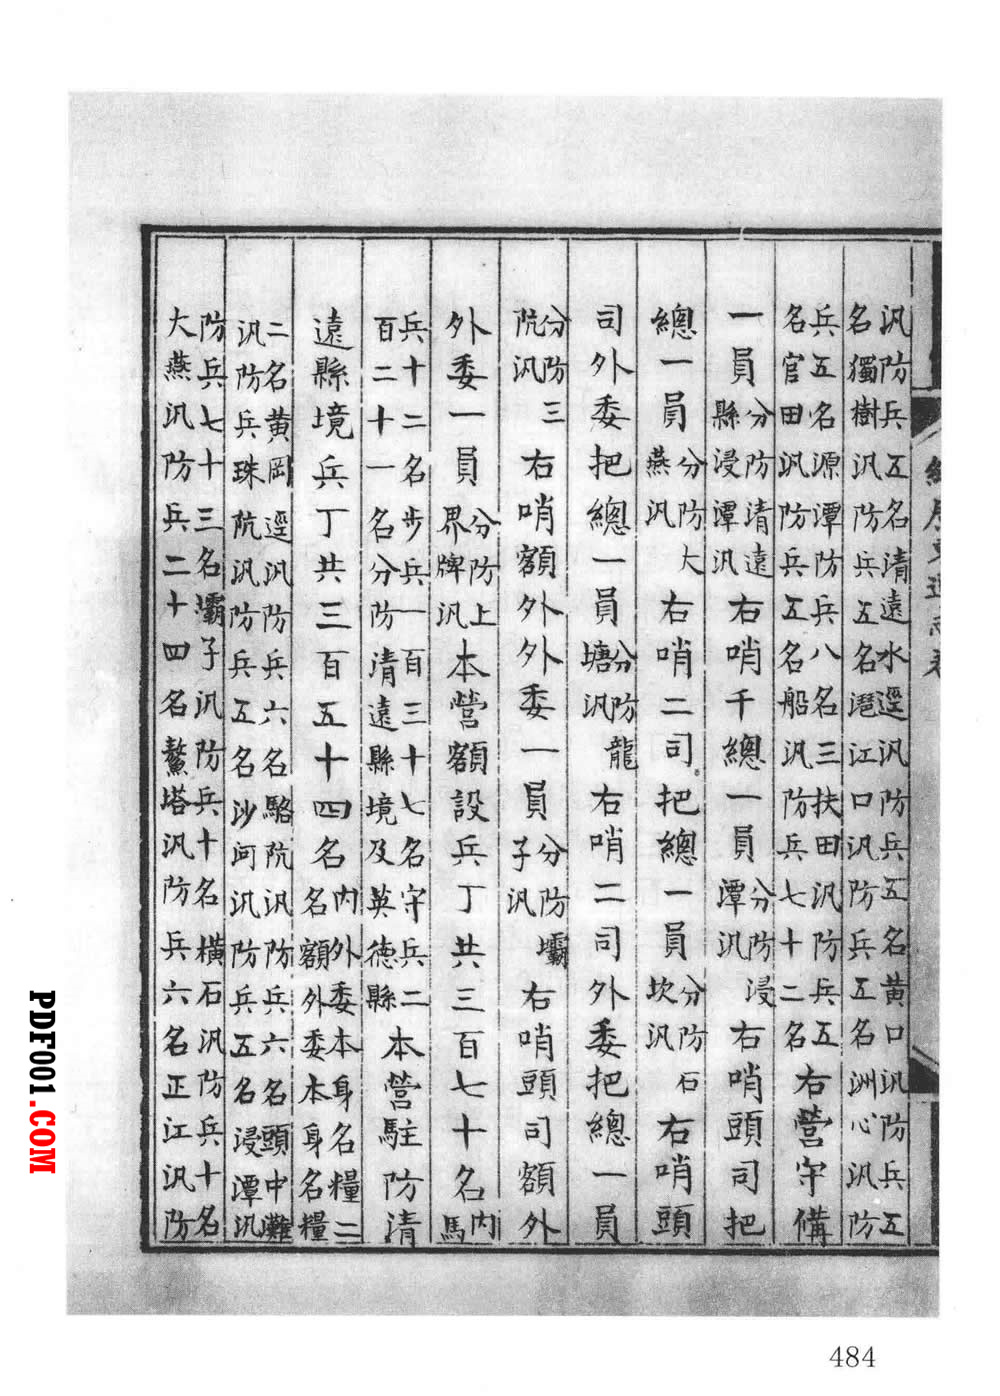 汛防兵五名清遠水逕汛防兵五名黄口汛防兵五
名獨樹汛防兵五名滬江口汛防兵五名洲心汛防
兵五名源潭防兵八名三扶田汛防兵五
名官田汛防兵五名船汛防兵七十二名
右營守備
一員
分防清遠
縣浸潭汛
右哨千總一員
分防浸
潭汛
右哨頭司把
總一員
分防大
燕汛
右哨二司把總一員
分防石
坎汛
右哨頭
司外委把總一員
分防龍
塘汛
右哨二司外委把總一員
分防三
阬汛
右哨額外外委一員
分防壩
子汛
右哨頭司額外
外委一員
分防上
界牌汛
本營額設兵丁共三百七十名
内
馬
兵十二名步兵一百三十七名守兵二
百二十一名分防清遠縣境及英德縣
本營駐防清
遠縣境兵丁共三百五十四名
内外委本身名糧二
名額外委本身名糧
二名黄岡逕汛防兵六名駱阬汛防兵六名頭中灘
汛防兵珠阬汛防兵五名沙河汛防兵五名浸潭汛
防兵七十三名壩子汛防兵十名横石汛防兵十名
大燕汛防兵二十四名鰲塔汛防兵六名正江汛防
484
PDF001.COM